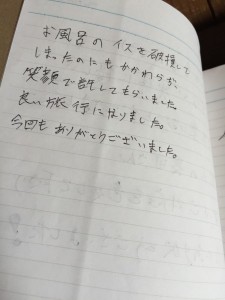 お風呂のイスを破損して
しまったのにもかかわらず、
笑顔で許してもらいました。
良い旅行になりました。
今回もありがとうございました。